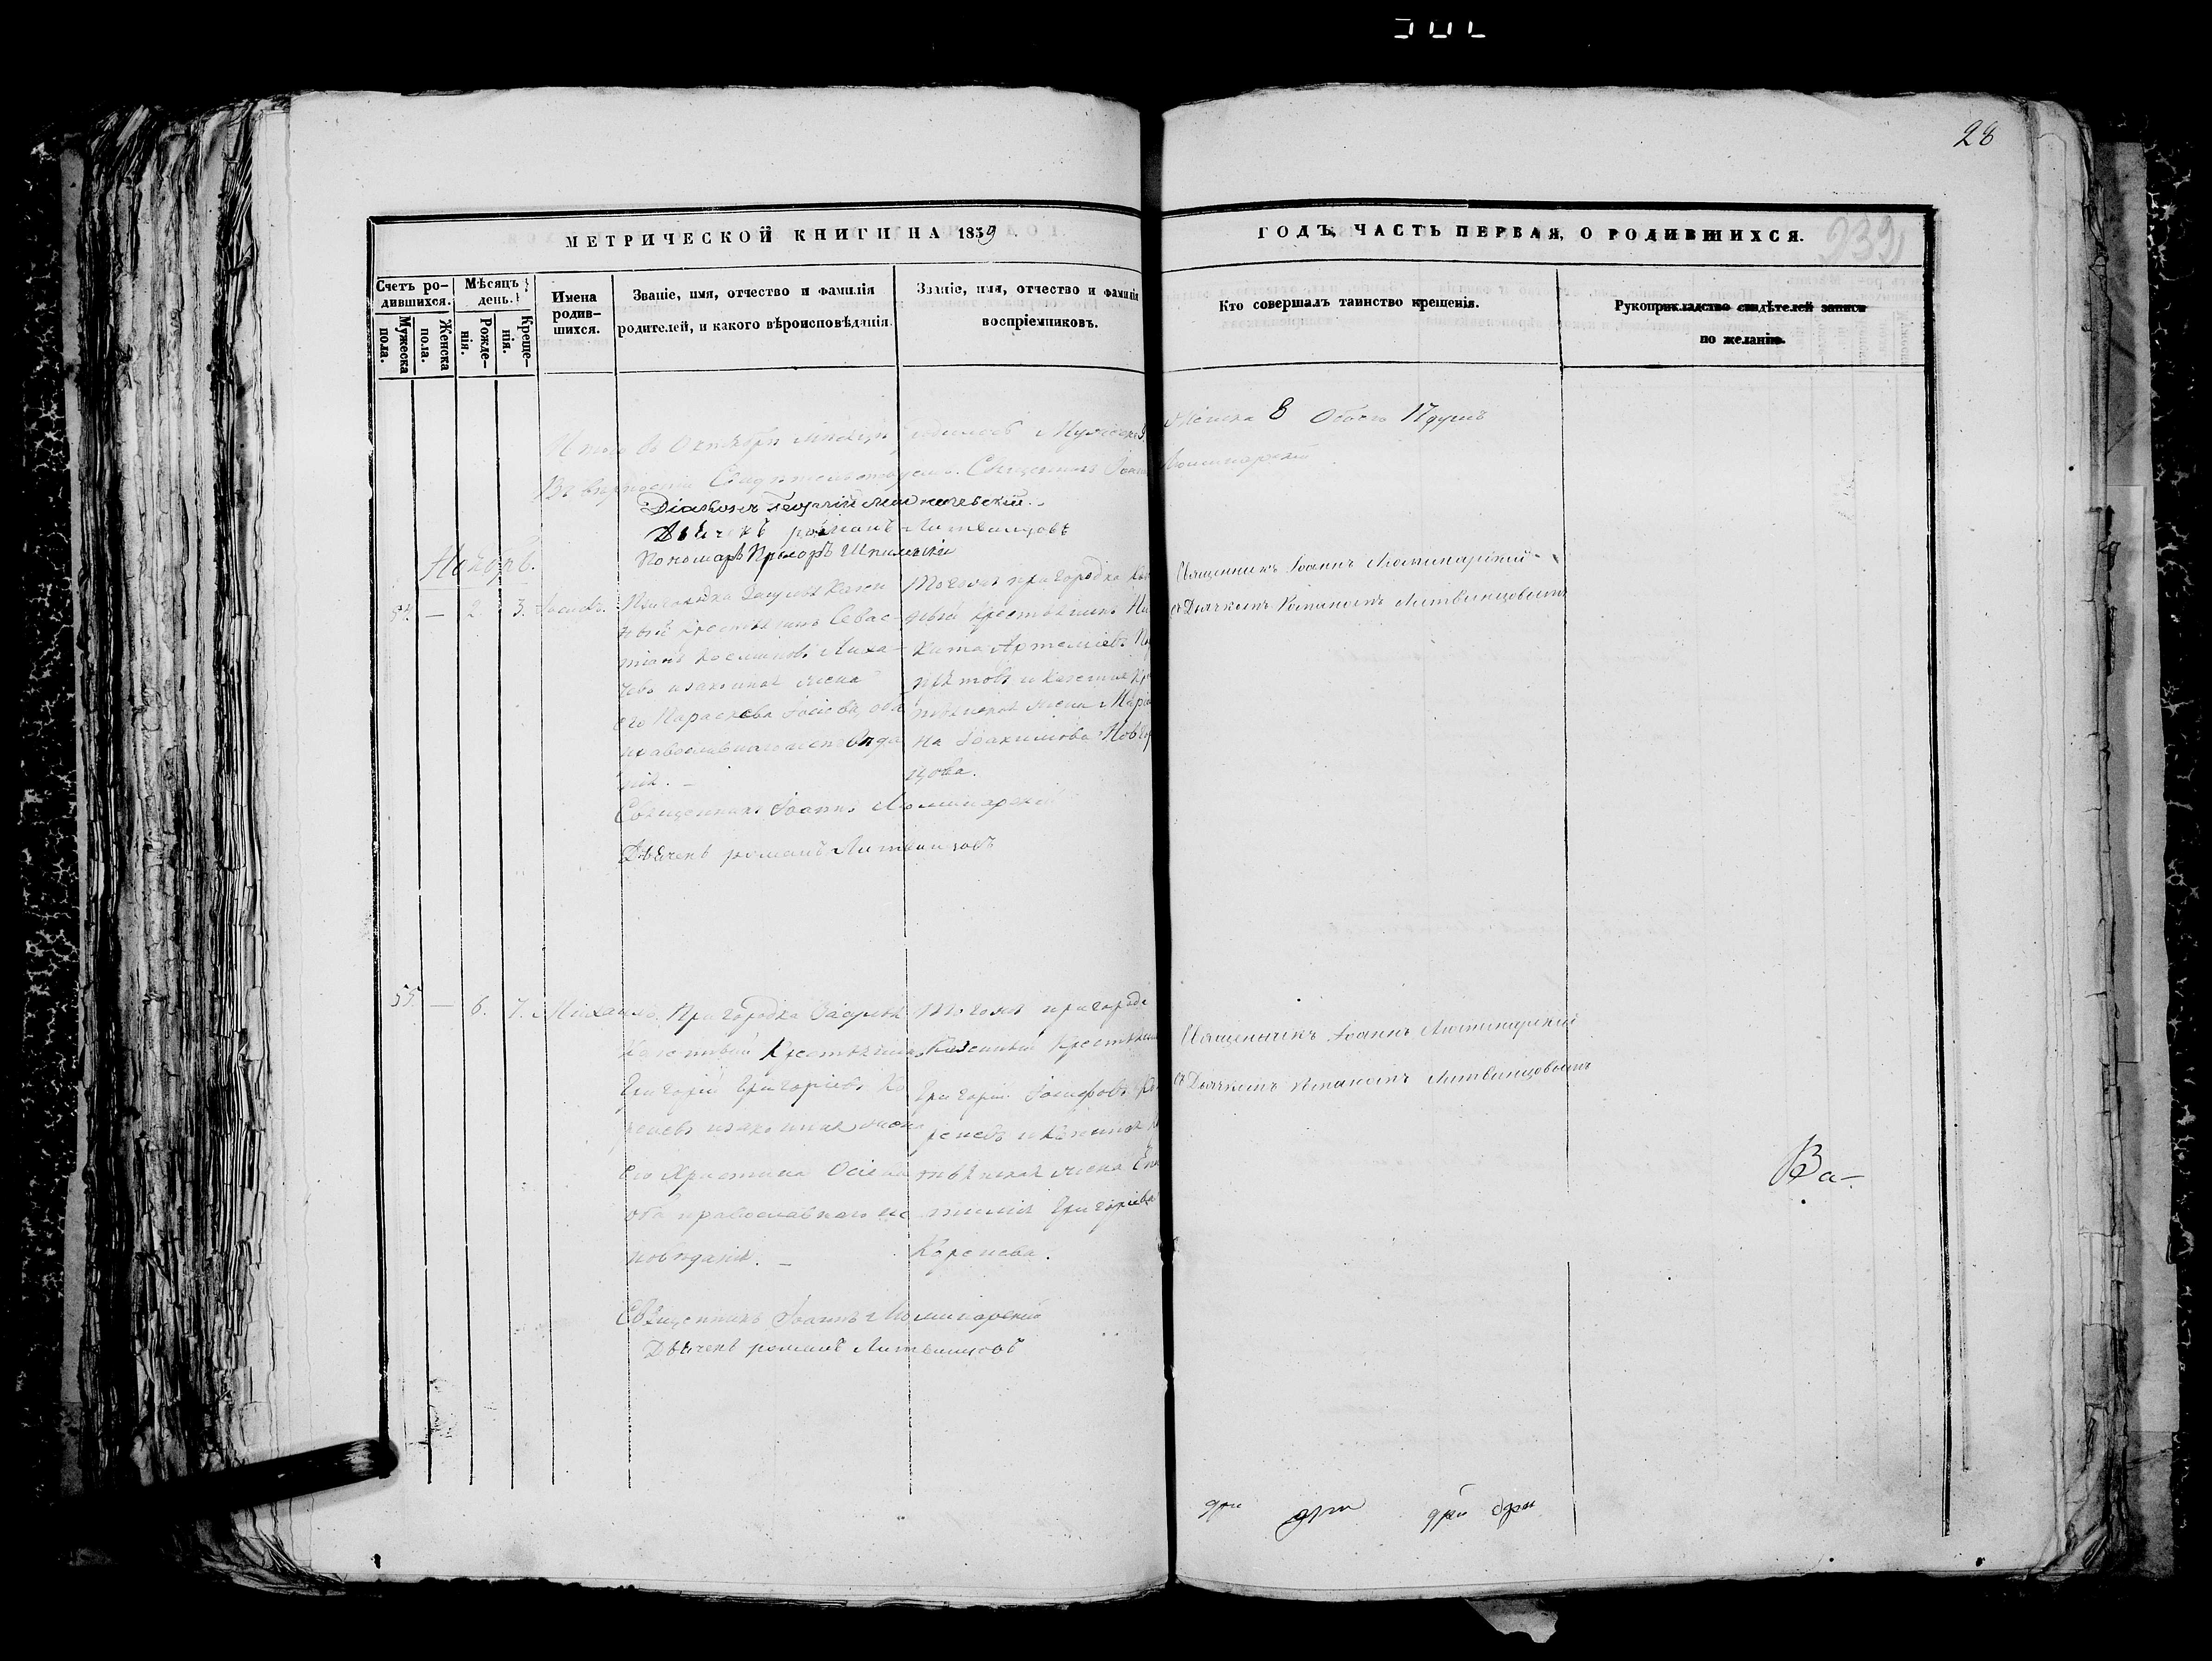 28
МЕТРИЧЕСКОЙ КНИГИ НА 1859
ГОДЪ, ЧАСТЬ ПЕРВАЯ, О РОДИВШИХСЯ.
939
Счетъ родившихся.
Мужеска пола.
Женска пола.
Мѣсяцъ день.
Рожденія.
Крещенія.
Имена родившихся.
Званіе, имя, отчество и фамилія
родителей, и какого вѣроисповѣданія.
Званіе, имя, отчество и фамилія
воспріемниковъ.
Кто совершалъ таинство крещенія.
Рукоприкладство свидѣтелей записи
по желанію.
Итого въ Октябрѣ мѣсяцѣ родилось Мужеска 9. Женска 8 Обоего 17 душъ
Въ вѣрности Свидѣтельствуемъ. Священникъ Іоаннъ Люминарскій
Діаконъ Георгій
Дьячекъ романъ Литвинцовъ
Пономарь
Ноябрь.
54. — 2. 3. Іосифъ.
Пригородка Засулья Казен
ный крестьянинъ Севас-
тіанъ Косминовъ Лиха-
чевъ и законная жена
его Параскева Іосіева, оба
православнаго исповѣда
нія. —
Тогожъ пригородка Казен
ный крестьянинъ Ни
кита Артеміевъ
и Казенная Кре
стьянская жена Марiа
на Іоакимова
цова.
Священникъ Іоаннъ Люминарскій
съ Дьячкомъ Романомъ Литвинцовымъ
Священникъ Іоаннъ Люминарскій
Дьячекъ романъ Литвинцовъ
55. — 6. 7. Михаилъ.
Пригородка Засулья
Казенный Крестьянинъ
Григорій Григоріевъ Ко
реневъ и законная жена
его Христина Осіева
оба православнаго ис
повѣданія. —
Тогожъ пригородк
Казенный Крестьянинъ
Григорій Іосифовъ Ко
реневъ и Казенная Кре
стьянская жена Ев
фимія Григоріева
Коренева.
Священникъ Іоаннъ Люминарскій
съ Дьячкомъ Романомъ Литвинцовымъ
Священникъ Іоаннъ Люминарскій
Дьячекъ романъ Литвинцовъ
Ва-